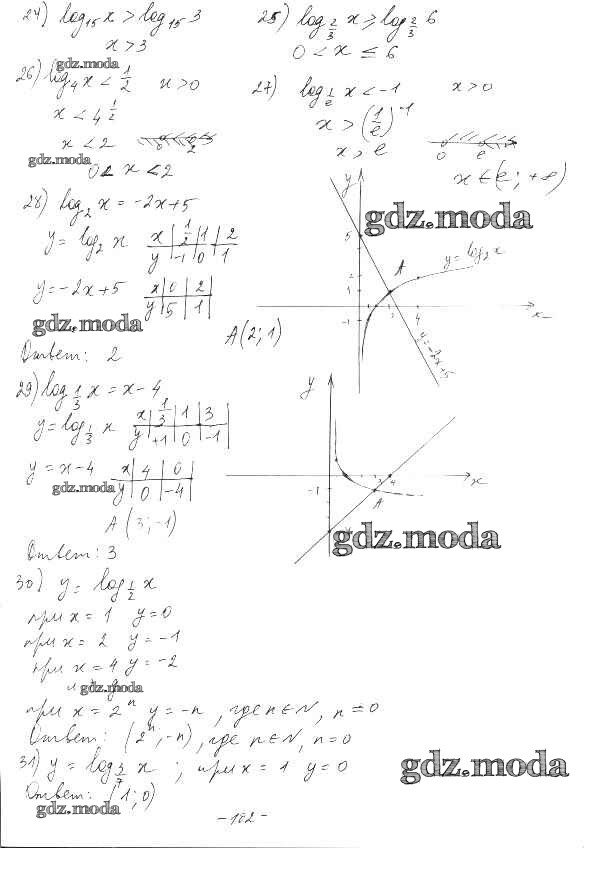 24) log₁₅ x > log₁₅ 3
x > 3
25) log_{2/3} x ⩾ log_{2/3} 6
0 < x ≤ 6
gdz.moda
26) log₄ x < 1/2    x > 0
x < 4^{1/2}
x < 2    0 2
gdz.moda
0 < x < 2
27) log_{1/e} x < -1    x > 0
x > (1/e)^{-1}
x > e    0 e
x ∈ (e; +∞)
28) log₂ x = -2x+5
y = log₂ x    x | 1/2 | 1 | 2
y | -1 | 0 | 1
y = -2x+5    x | 0 | 2
y | 5 | 1
gdz.moda
A (2; 1)
Ответ: 2
y
gdz.moda
5
y = log₂ x
A
2
1
-1
4
x
y = -2x+5
29) log_{1/3} x = x - 4
y = log_{1/3} x    x | 1/3 | 1 | 3
y | +1 | 0 | -1
y = x - 4    x | 4 | 0
gdz.moda    y | 0 | -4
A (3; -1)
Ответ: 3
y
3 4
x
-1
A
gdz.moda
30) y = log_{1/2} x
при x = 1    y = 0
при x = 2    y = -1
при x = 4    y = -2
gdz.moda
при x = 2ⁿ    y = -n, где n ∈ N, n = 0
Ответ: (2ⁿ; -n), где n ∈ N, n = 0
31) y = log_{3/7} x ; при x = 1    y = 0
gdz.moda
Ответ: (1; 0)
gdz.moda
- 102 -